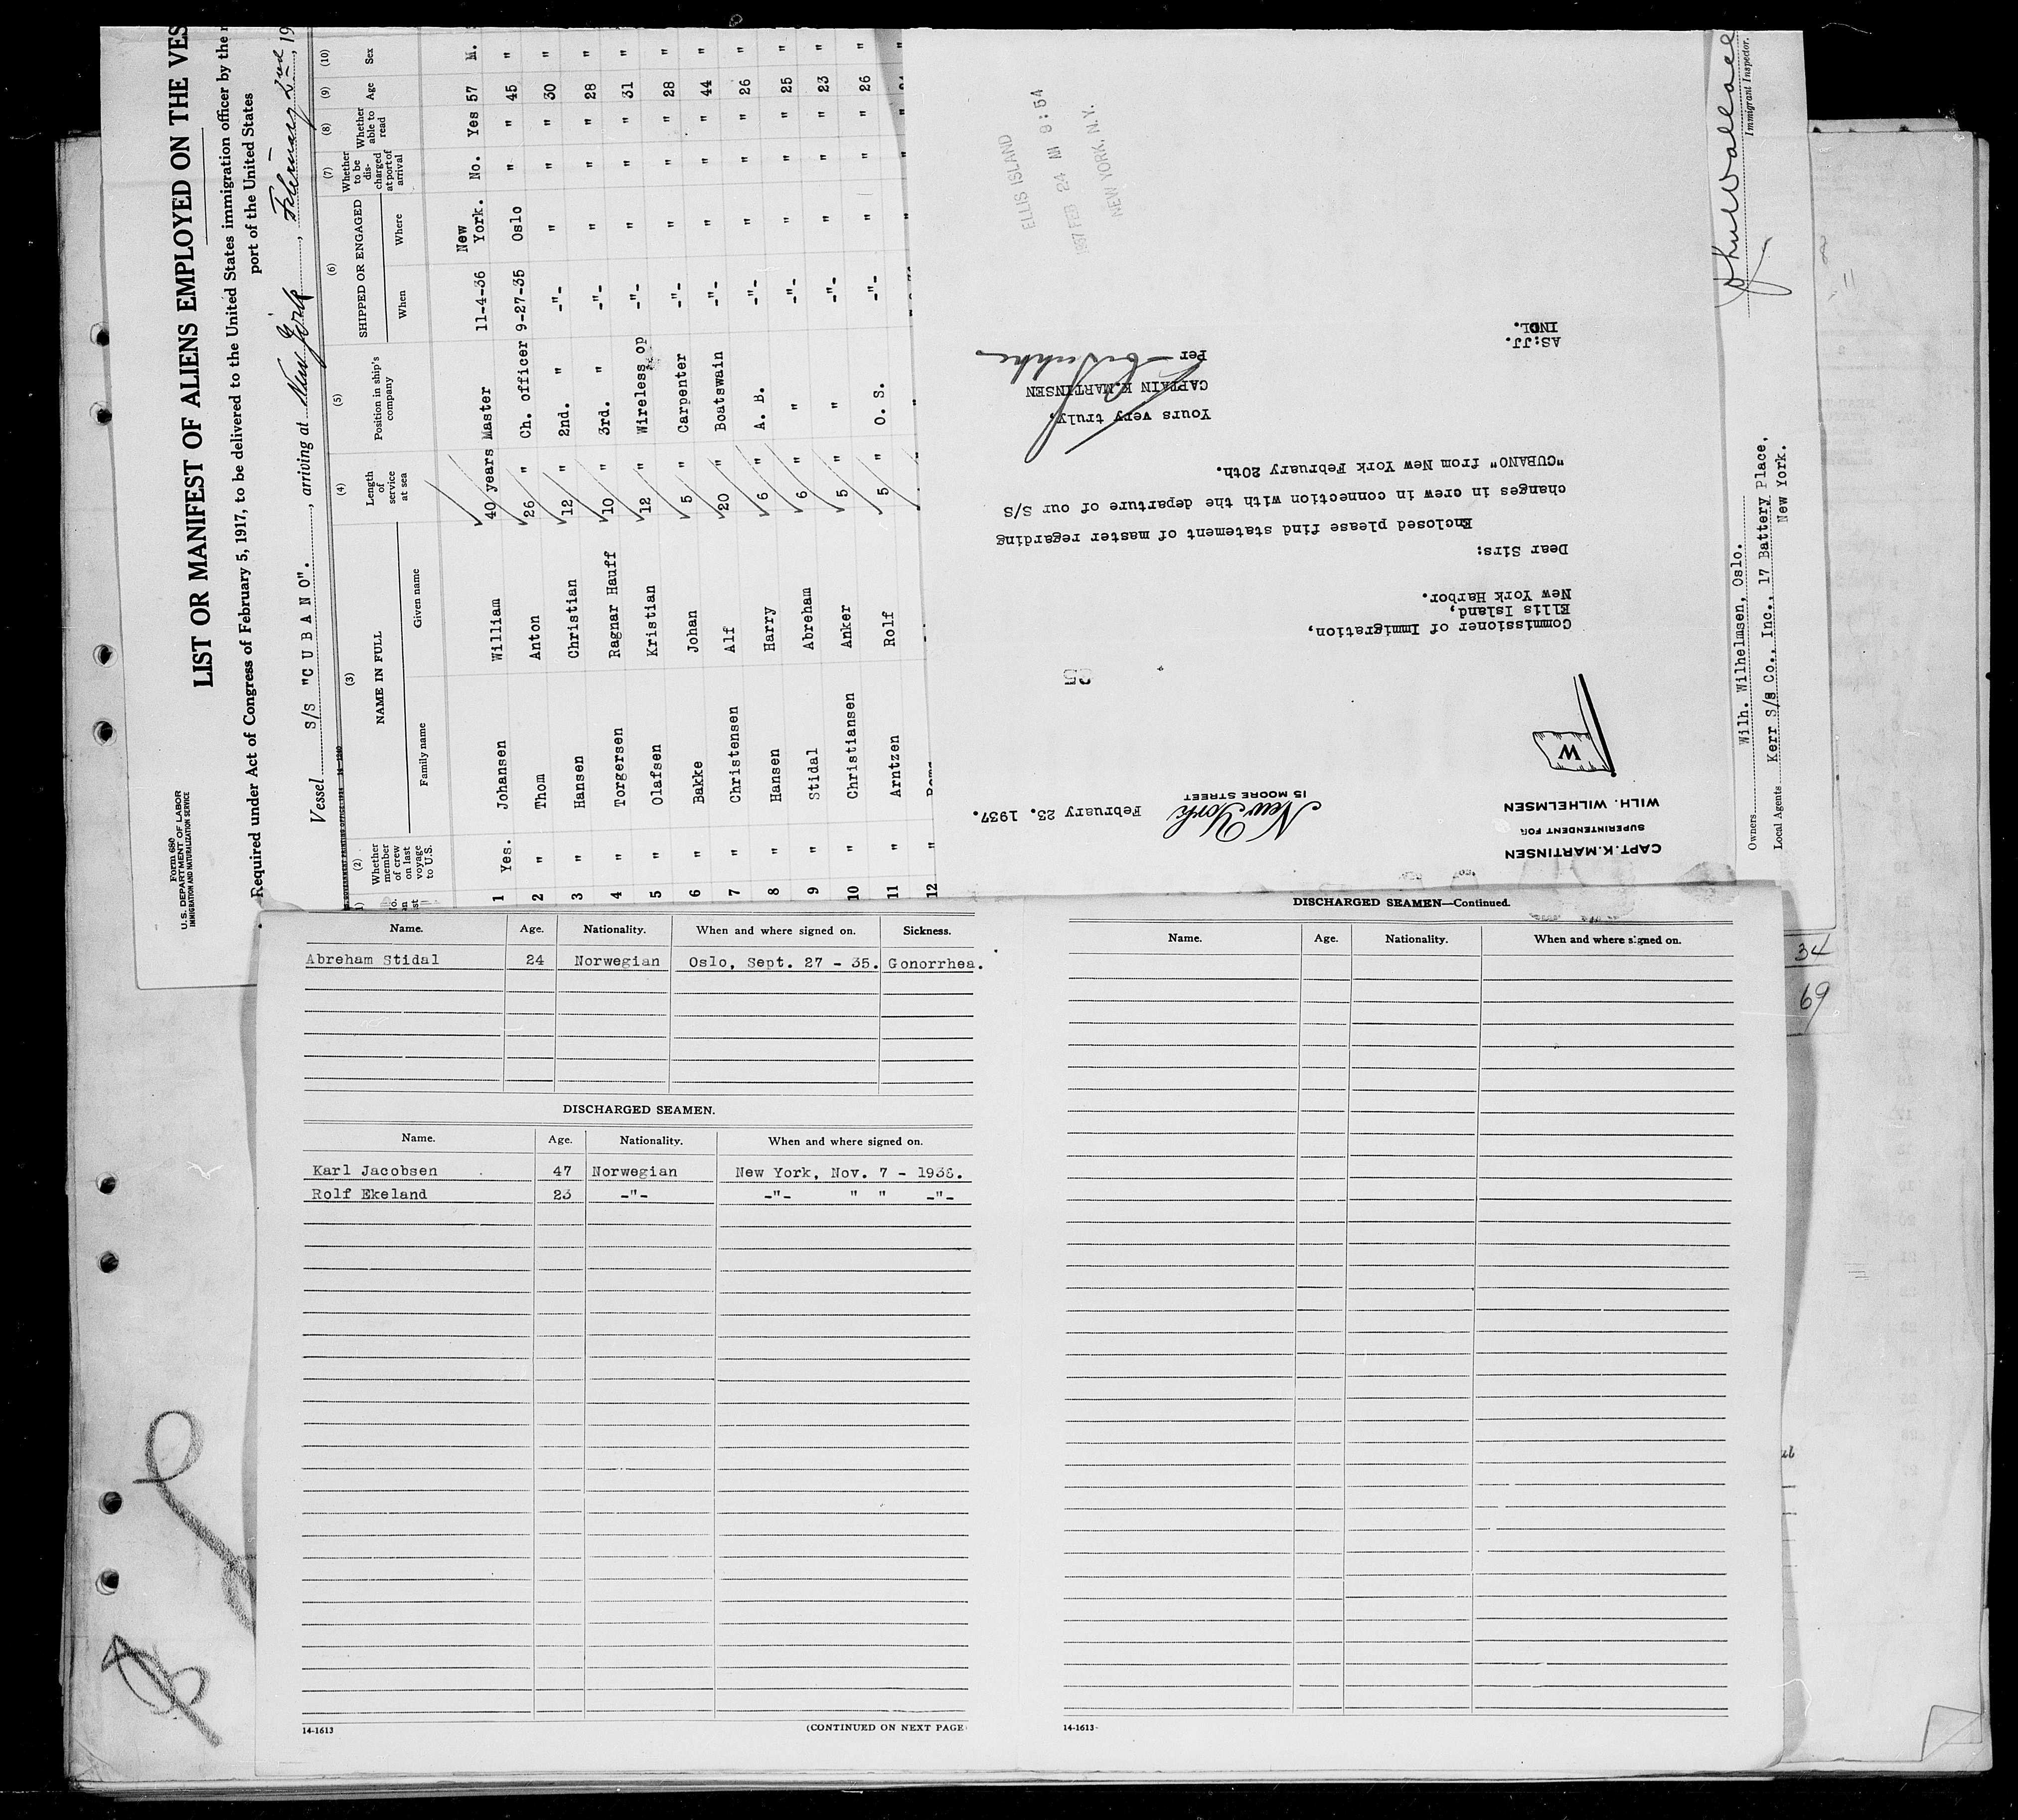 Form 680
U.S. DEPARTMENT OF LABOR
IMMIGRATION AND NATURALIZATION SERVICE
LIST OR MANIFEST OF ALIENS EMPLOYED ON THE VES
Required under Act of Congress of February 5, 1917, to be delivered to the United States immigration officer by the
port of the United States
Vessel S/S "CUBANO". , arriving at New York , February 2nd , 19
(2) (3) (4) (5) (6) (7) (8) (9) (10)
Whether member of crew on last voyage to U.S. NAME IN FULL Length of service at sea Position in ship's company SHIPPED OR ENGAGED Whether to be discharged at port of arrival Whether able to read Age Sex
Family name Given name When Where
1 Yes. Johansen William 40 years Master 11-4-36 New York. No. Yes 57 M.
2 " Thom Anton 26 " Ch. officer 9-27-35 Oslo " " 45 "
3 " Hansen Christian 12 " 2nd. " -"- " " " 30 "
4 " Torgersen Ragnar Hauff 10 " 3rd. " -"- " " " 28 "
5 " Olafsen Kristian 12 " Wireless op -"- " " " 31 "
6 " Bakke Johan 5 " Carpenter -"- " " " 28 "
7 " Christensen Alf 20 " Boatswain -"- " " " 44 "
8 " Hansen Harry 6 " A. B. -"- " " " 26 "
9 " Stidal Abreham 6 " " -"- " " " 25 "
10 " Christiansen Anker 5 " " -"- " " " 23 "
11 " Arntzen Rolf 5 " O. S. -"- " " " 26 "
12 "
CAPT. K. MARTINSEN
SUPERINTENDENT FOR
WILH. WILHELMSEN
W
New York
15 MOORE STREET
February 23. 1937.
25
Commissioner of Immigration,
Ellis Island,
New York Harbor.
Dear Sirs:
Enclosed please find statement of master regarding
changes in crew in connection with the departure of our S/S
"CUBANO" from New York February 20th.
Yours very truly,
CAPTAIN K.MARTINSEN
Per
AS:JJ.
INCL.
ELLIS ISLAND
1937 FEB 24 AM 9:54
NEW YORK, N.Y.
Owners Wilh. Wilhelmsen, Oslo.
Local Agents Kerr S/S Co., Inc., 17 Battery Place,
New York.
John Wallace
Immigrant Inspector.
34
69
Name. Age. Nationality. When and where signed on. Sickness.
Abreham Stidal 24 Norwegian Oslo, Sept. 27 - 35. Gonorrhea.
DISCHARGED SEAMEN.
Name. Age. Nationality. When and where signed on.
Karl Jacobsen 47 Norwegian New York, Nov. 7 - 1936.
Rolf Ekeland 23 -"- -"- " " -"-
14-1613
(CONTINUED ON NEXT PAGE
DISCHARGED SEAMEN—Continued.
Name. Age. Nationality. When and where signed on.
14-1613